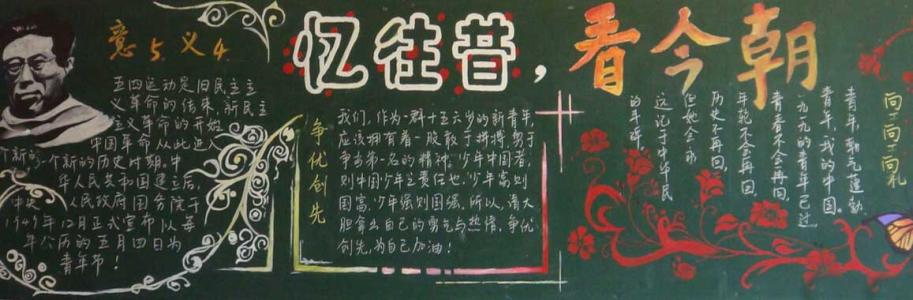 忆往昔，看今朝
意5.义4.
五四运动是旧民主主
义革命的结束，新民主
主义革命的开始
中国革命从此进入
个新的历史时期.中
华人民共和国建立后,
中央人民政府国务院于
1949年12月正式宣布以每
年公历的五月四日为
青年节！
争优创先
我们，作为一群十五六岁的新青年，
应该拥有着一股敢于拼搏，勇于
争当第一名的精神。少年中国者，
则中国少年之责任也，少年富则
国富，少年强则国强，所以，请大
胆拿出自己的勇气与热情，争优
创先,为自己加油！
青年，朝气蓬勃
青年，我的中国。
一九一九的青年已过
青春不会再回，
年轮不会再回，
历史不再回
但她会永
远记于中华民
的丰碑